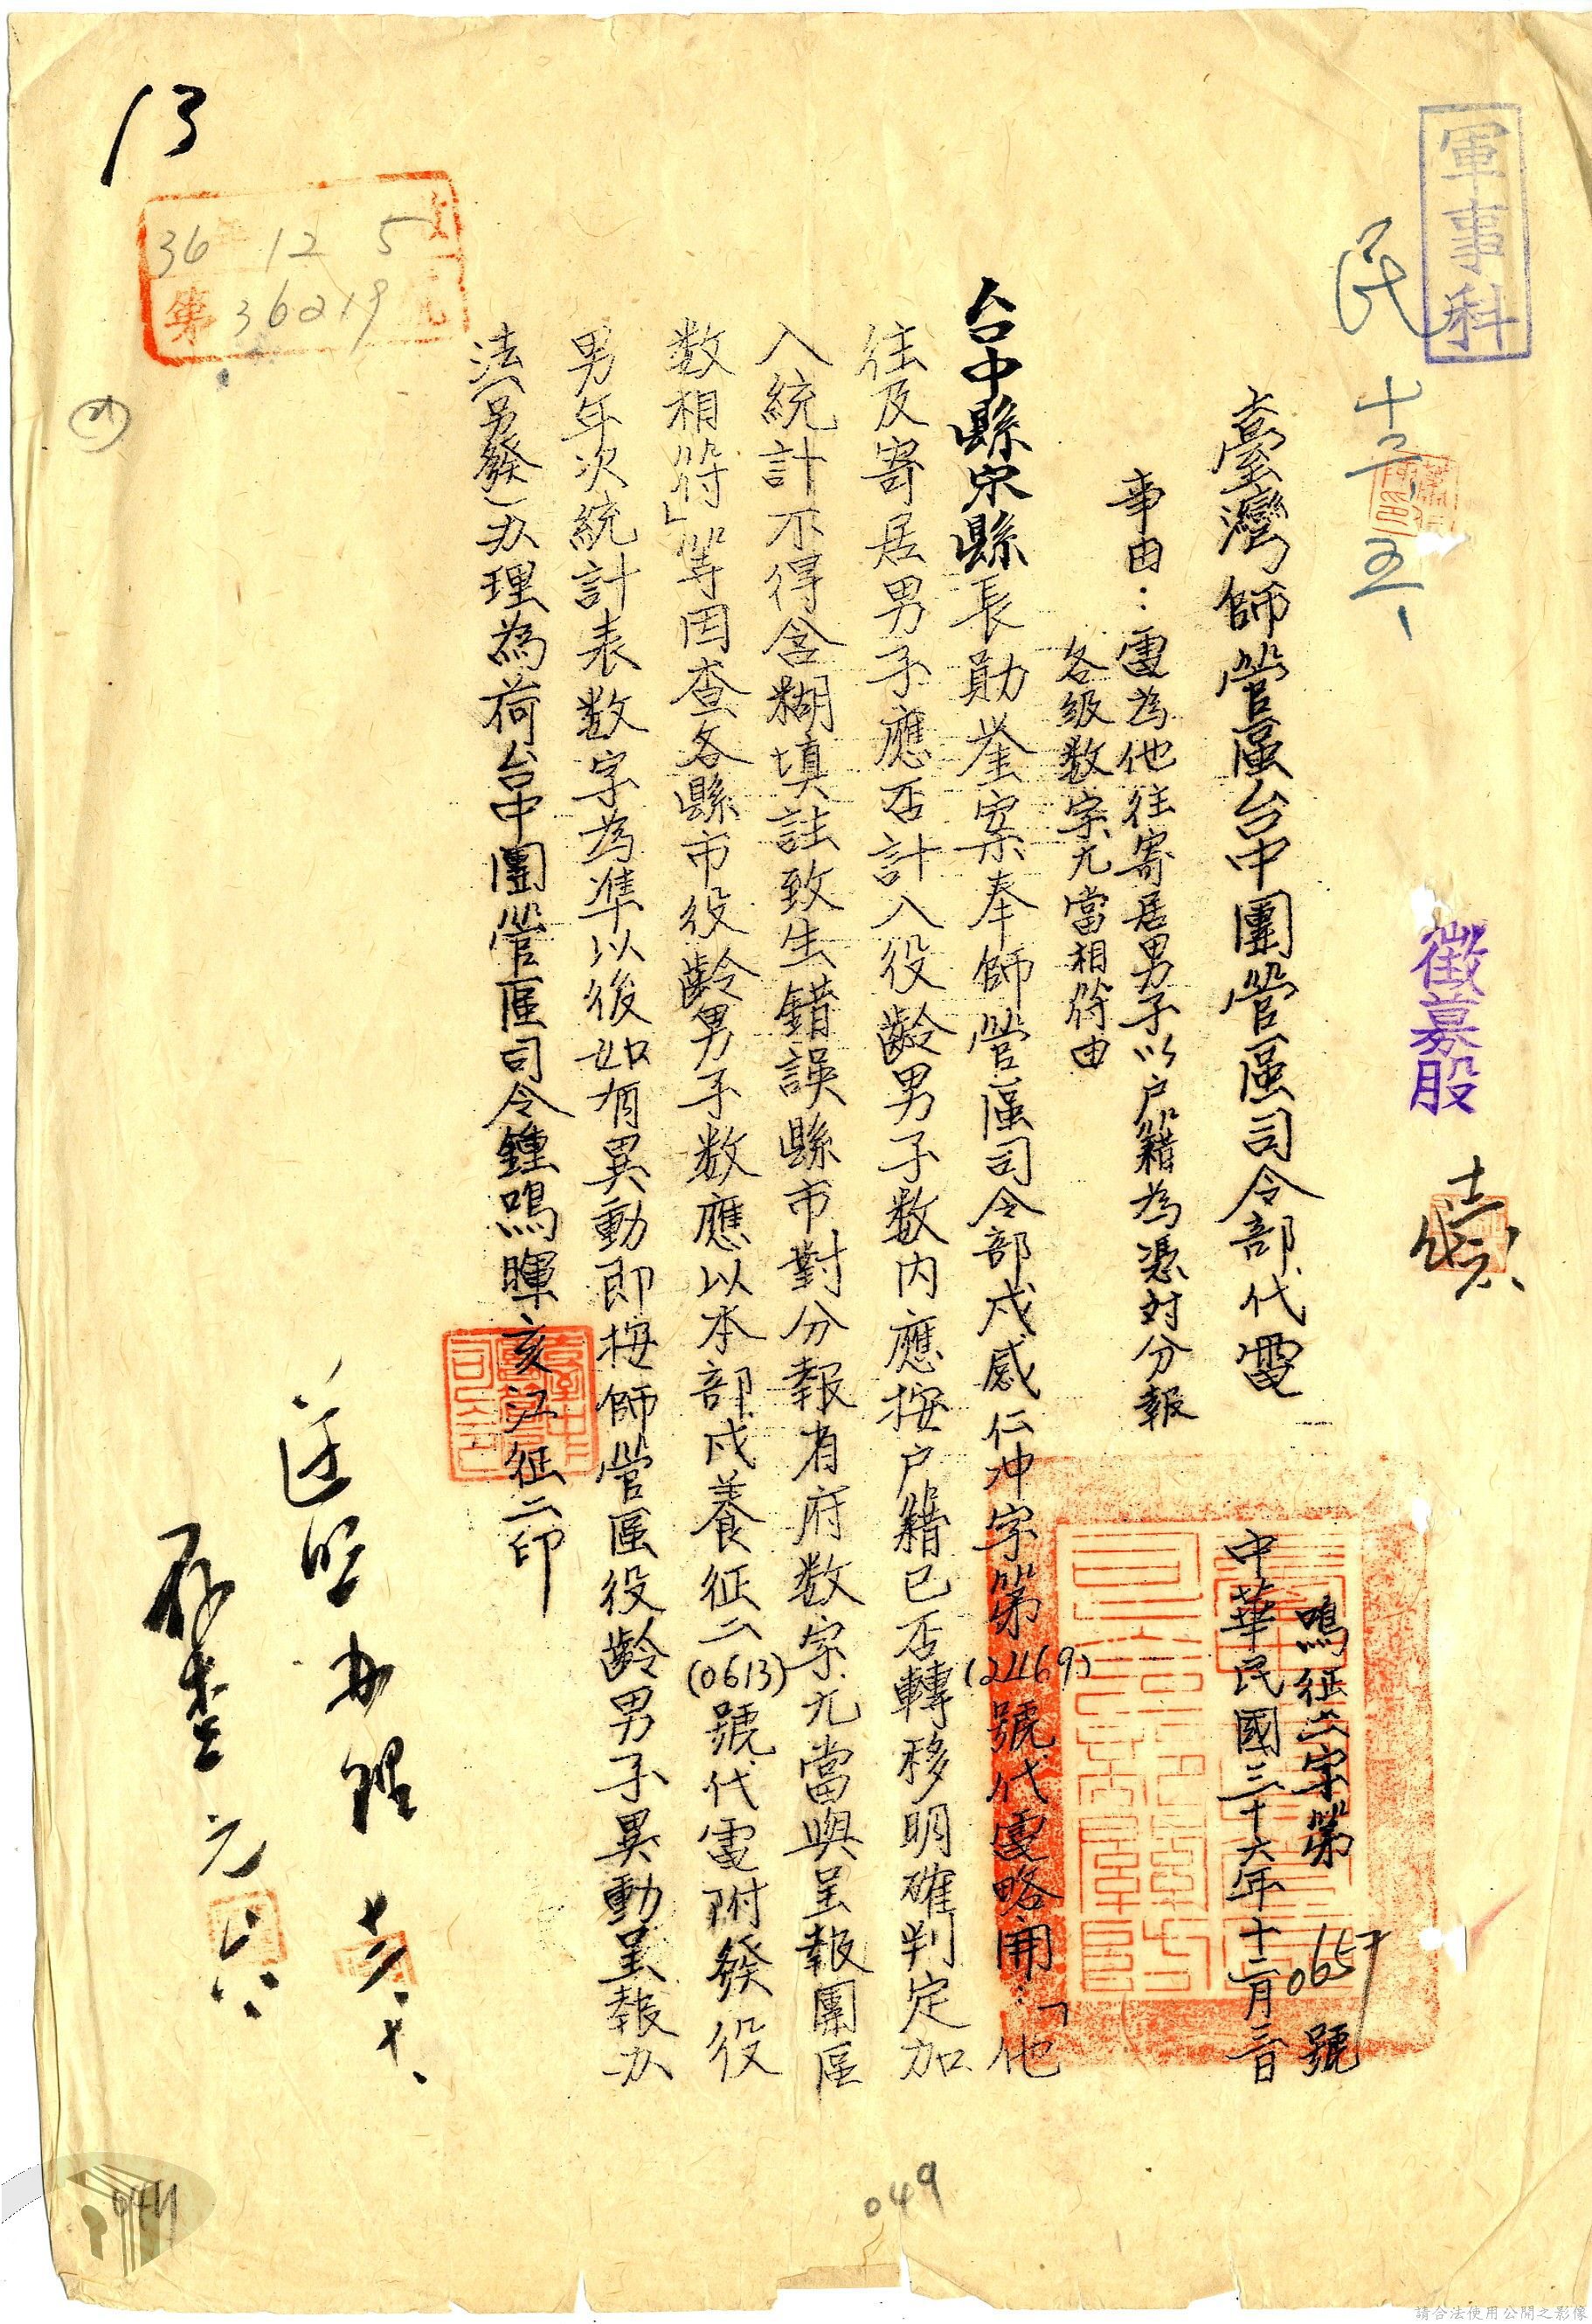 軍事科
民
十二、五、
徵募股
臺灣師管區台中團管區司令部代電
鳴征二字第0657號
中華民國三十六年十二月三日
事由：電為他往寄居男子以户籍為憑对分報
各級数字尤當相符由
台中縣宋縣長勛鉴案奉師管區司令部戍感仁冲字第(22169)號代電略開：「他
往及寄居男子應否計入役齡男子数内應按户籍已否轉移明確判定加
入統計不得含糊填註致生錯誤縣市對分報省府数字尤當與呈報團區
数相符」等因查各縣市役齡男子数應以本部戍養征二(0613)號代電附發役
男年次統計表数字為準以後如有異動即按師管區役齡男子異動呈報办
法(另發)办理為荷台中團管區司令鍾鳴暉亥江征二印
13
36 12 5
第36219
049
請合法使用公開之影像